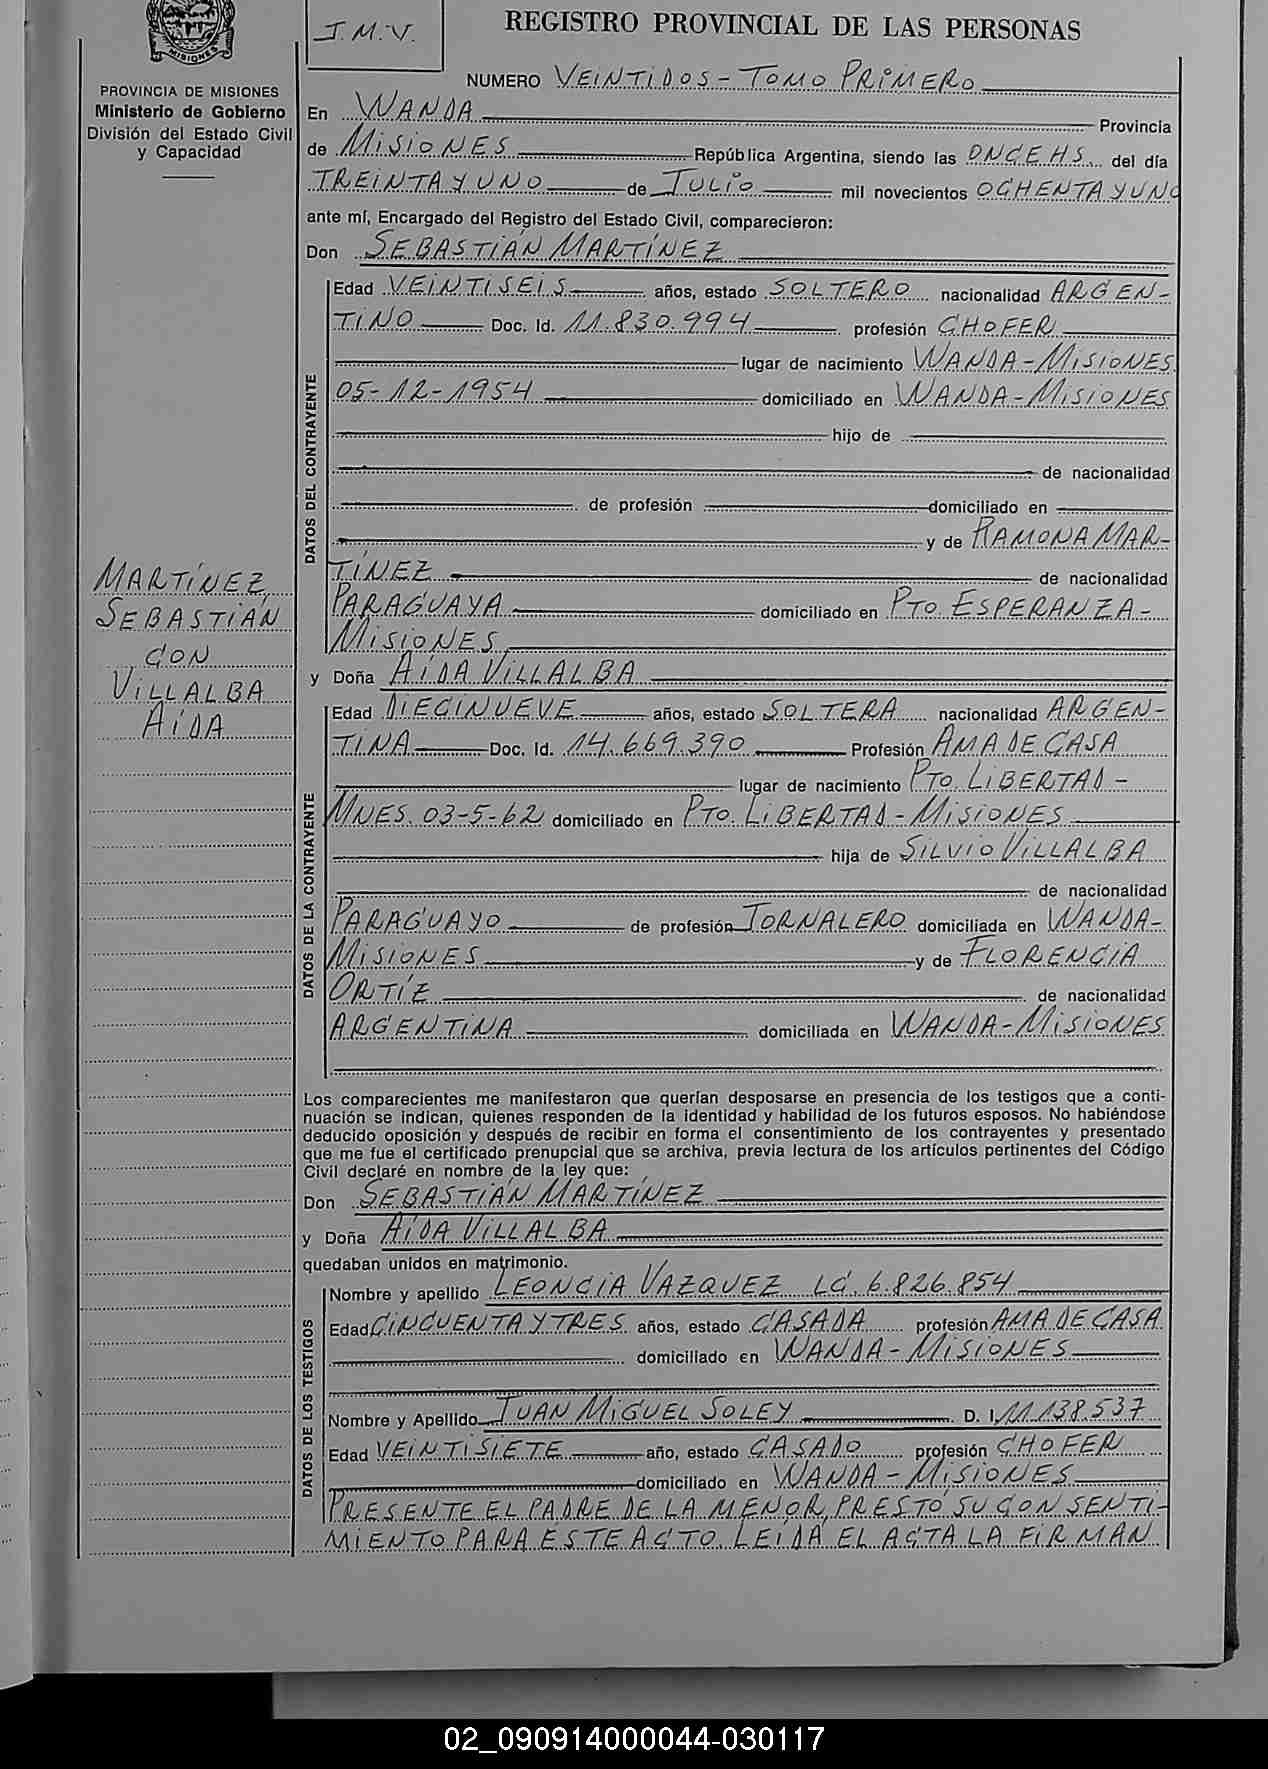 MISIONES
J.M.V.
REGISTRO PROVINCIAL DE LAS PERSONAS
NUMERO VEINTIDOS - TOMO PRIMERO
PROVINCIA DE MISIONES
Ministerio de Gobierno
División del Estado Civil
y Capacidad
En WANDA Provincia
de MISIONES República Argentina, siendo las ONCE HS. del día
TREINTA Y UNO de JULIO mil novecientos OCHENTA Y UNO
ante mí, Encargado del Registro del Estado Civil, comparecieron:
Don SEBASTIÁN MARTÍNEZ
DATOS DEL CONTRAYENTE
Edad VEINTISEIS años, estado SOLTERO nacionalidad ARGEN-
TINO Doc. Id. 11.830.994 profesión CHOFER
lugar de nacimiento WANDA - MISIONES
05-12-1954 domiciliado en WANDA - MISIONES
hijo de
de nacionalidad
de profesión domiciliado en
y de RAMONA MAR-
TÍNEZ de nacionalidad
PARAGUAYA domiciliado en PTO. ESPERANZA -
MISIONES
MARTÍNEZ,
SEBASTIÁN
CON
VILLALBA
AÍDA
y Doña AÍDA VILLALBA
DATOS DE LA CONTRAYENTE
Edad DIECINUEVE años, estado SOLTERA nacionalidad ARGEN-
TINA Doc. Id. 14.669.390 Profesión AMA DE CASA
lugar de nacimiento PTO. LIBERTAD -
MNES. 03-5-62 domiciliado en PTO. LIBERTAD - MISIONES
hija de SILVIO VILLALBA
de nacionalidad
PARAGUAYO de profesión JORNALERO domiciliada en WANDA -
MISIONES y de FLORENCIA
ORTÍZ de nacionalidad
ARGENTINA domiciliada en WANDA - MISIONES
Los comparecientes me manifestaron que querían desposarse en presencia de los testigos que a conti-
nuación se indican, quienes responden de la identidad y habilidad de los futuros esposos. No habiéndose
deducido oposición y después de recibir en forma el consentimiento de los contrayentes y presentado
que me fue el certificado prenupcial que se archiva, previa lectura de los artículos pertinentes del Código
Civil declaré en nombre de la ley que:
Don SEBASTIÁN MARTÍNEZ
y Doña AÍDA VILLALBA
quedaban unidos en matrimonio.
DATOS DE LOS TESTIGOS
Nombre y apellido LEONCIA VAZQUEZ LC. 6.826.854
Edad CINCUENTA Y TRES años, estado CASADA profesión AMA DE CASA
domiciliado en WANDA - MISIONES
Nombre y Apellido JUAN MIGUEL SOLEY D. I. 11.138.537
Edad VEINTISIETE año, estado CASADO profesión CHOFER
domiciliado en WANDA - MISIONES
PRESENTE EL PADRE DE LA MENOR, PRESTÓ SU CONSENTI-
MIENTO PARA ÉSTE ACTO. LEÍDA EL ACTA LA FIRMAN
02_090914000044-030117